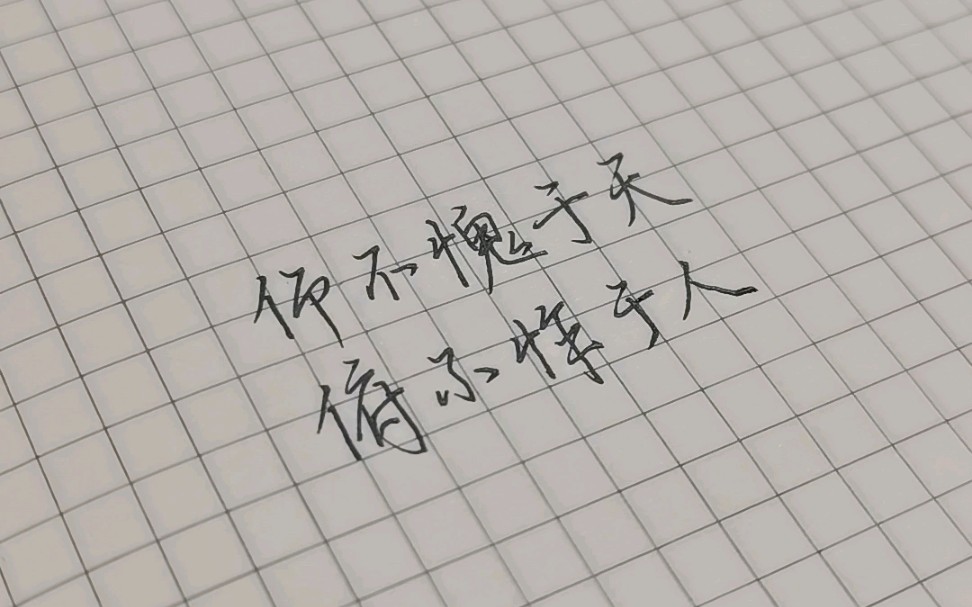 仰不愧于天
俯不怍于人